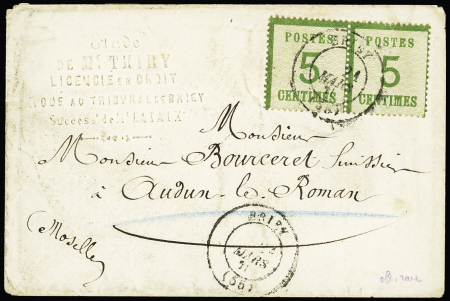 Etude
DE Me THIRY
LICENCIÉ EN DROIT
AVOUÉ AU TRIBUNAL DE BRIEY
Success. de Me LATAIX
POSTES
5
CENTIMES
POSTES
5
CENTIMES
BRIEY
MARS
Monsieur
Monsieur Bourceret huissier
à Audun-le-Roman
(Moselle)
BRIEY
MARS
71
(55)